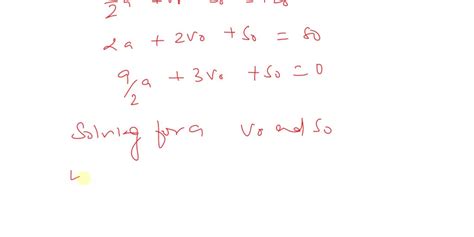 2a + 2v₀ + s₀ = 80
9/2 a + 3v₀ + s₀ = 0
Solving for a v₀ and s₀